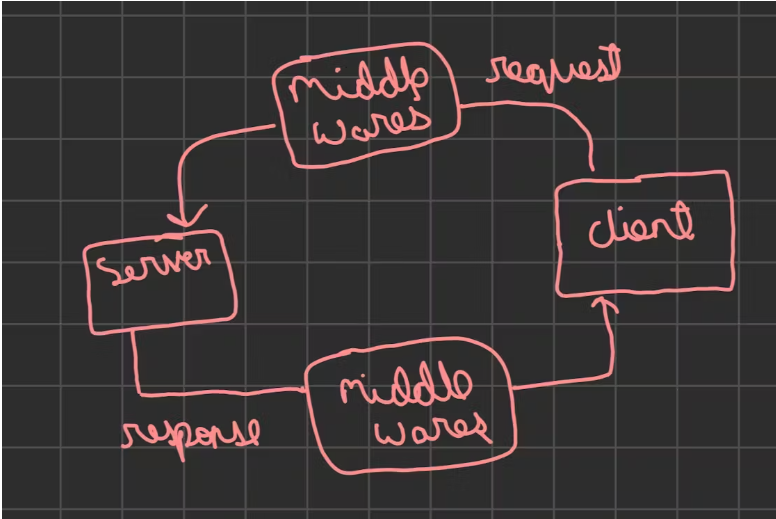 middle
wares
request
client
server
middle
wares
response